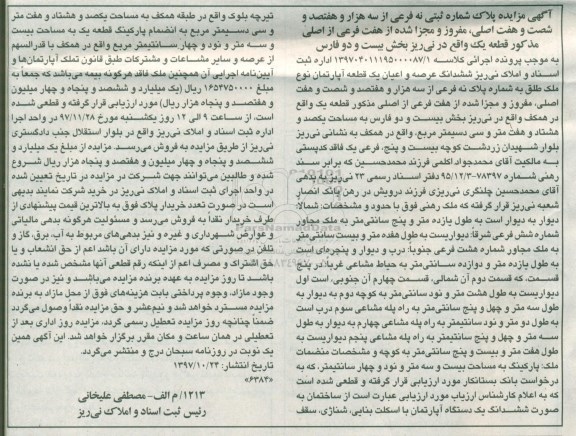 آگهی مزایده پلاک شماره ثبتی نه فرعی از سه هزار و هفتصد و
شصت و هفت اصلی، مفروز و مجزا شده از هفت فرعی از اصلی
مذکور قطعه یک واقع در نی‌ریز بخش بیست و دو فارس
به موجب پرونده اجرائی کلاسه ۱۳۹۷۰۴۰۱۱۱۹۵۰۰۰۰۸۷/۱ اداره ثبت
اسناد و املاک نی‌ریز ششدانگ عرصه و اعیان یک قطعه آپارتمان نوع
ملک طلق به شماره پلاک نه فرعی از سه هزار و هفتصد و شصت و هفت
اصلی، مفروز و مجزا شده از هفت فرعی از اصلی مذکور قطعه یک واقع
در همکف واقع در نی‌ریز بخش بیست و دو فارس به مساحت یکصد و
هشتاد و هفت متر و سی دسیمتر مربع، واقع در همکف به نشانی نی‌ریز
بلوار شهیدان زردشت کوچه بیست و پنج، فرعی یک فاقد کدپستی
به مالکیت آقای محمدجواد اکلمی فرزند محمدحسین که برابر سند
رهنی شماره ۷۸۳۹۷-۹۵/۱۲/۳ دفتر اسناد رسمی ۲۳ نی‌ریز به بدهی
آقای محمدحسین چلنگری نی‌ریزی فرزند درویش در رهن بانک انصار
شعبه نی‌ریز قرار گرفته که ملک رهنی فوق با حدود و مشخصات: شمالا:
دیوار به دیوار است به طول یازده متر و پنج سانتی‌متر به ملک مجاور
شماره شش فرعی شرقاً: دیواریست به طول هفده متر و بیست سانتی‌متر
به ملک مجاور شماره هشت فرعی جنوبا: درب و دیوار و پنجره‌ای است
به طول یازده متر و دوازده سانتی‌متر به حیاط مشاعی غربا: در پنج
قسمت، که قسمت دوم آن شمالی، قسمت چهارم آن جنوبی، است اول
دیواریست به طول هشت متر و نود سانتی‌متر به کوچه دوم به دیوار به
طول سه متر و چهل و پنج سانتیمتر به راه پله مشاعی سوم درب است
به طول دو متر و نود سانتیمتر به راه پله مشاعی چهارم به دیوار به طول
سه متر و چهل و پنج سانتیمتر به راه پله مشاعی پنجم دیواریست به
طول هفت متر و بیست و پنج سانتی‌متر به کوچه و مشخصات منضمات
ملک: پارکینگ به مساحت بیست و سه متر و نود و چهار سانتیمتر، که به
درخواست بانک بستانکار مورد ارزیابی قرار گرفته و قطعی شده است
که به اعلام کارشناس ارزیاب مورد ارزیابی عبارت است از ساختمان به
صورت ششدانگ یک دستگاه آپارتمان با اسکلت بنایی، شناژی، سقف
تیرچه بلوک واقع در طبقه همکف به مساحت یکصد و هشتاد و هفت متر
و سی دسیمتر مربع به انضمام پارکینگ قطعه یک به مساحت بیست
و سه متر و نود و چهار سانتیمتر مربع واقع در همکف با قدرالسهم
از عرصه و سایر مشاعات و مشترکات طبق قانون تملک آپارتمان‌ها و
آیین‌نامه اجرایی آن همچنین ملک فاقد هرگونه بیمه می‌باشد که جمعاً به
مبلغ ۱۶۵۴۷۵۰۰۰۰ ریال (یک میلیارد و ششصد و پنجاه و چهار میلیون
و هفتصد و پنجاه هزار ریال) مورد ارزیابی قرار گرفته و قطعی شده
است، از ساعت ۹ الی ۱۲ روز یکشنبه مورخ ۹۷/۱۱/۲۸ در واحد اجرا
اداره ثبت اسناد و املاک نی‌ریز واقع در بلوار استقلال جنب دادگستری
نی‌ریز از طریق مزایده به فروش می‌رسد. مزایده از مبلغ یک میلیارد و
ششصد و پنجاه و چهار میلیون و هفتصد و پنجاه هزار ریال شروع
شده و طالبین می‌توانند جهت شرکت در مزایده در تاریخ تعیین شده
در واحد اجرای ثبت اسناد و املاک نی‌ریز در خرید شرکت نمایند بدیهی
است در صورت تعدد خریدار پلاک فوق به بالاترین قیمت پیشنهادی از
طرف خریدار نقداً به فروش می‌رسد و مسئولیت هرگونه بدهی مالیاتی
و عوارض شهرداری و غیره و نیز بدهی‌های مربوط به آب، برق، گاز و
تلفن در صورتی که مورد مزایده دارای آن باشد اعم از حق انشعاب و یا
حق اشتراک و مصرف اعم از اینکه رقم قطعی آنها مشخص شده یا نشده
باشد تا روز مزایده به عهده برنده مزایده می‌باشد و نیز در صورت
وجود مازاد، وجوه پرداختی بابت هزینه‌های فوق از محل مازاد به برنده
مزایده مسترد خواهد شد و نیم‌عشر و حق مزایده نقداً وصول می‌گردد
ضمناً چنانچه روز مزایده تعطیل رسمی گردد، مزایده روز اداری بعد از
تعطیلی در همان ساعت و مکان مقرر برگزار خواهد شد. این آگهی همین
یک نوبت در روزنامه سبحان درج و منتشر می‌گردد.
تاریخ انتشار: ۱۳۹۷/۱۰/۲۳
«۶۳۸۴»
۱۲۱۳/م الف- مصطفی علیخانی
رئیس ثبت اسناد و املاک نی‌ریز